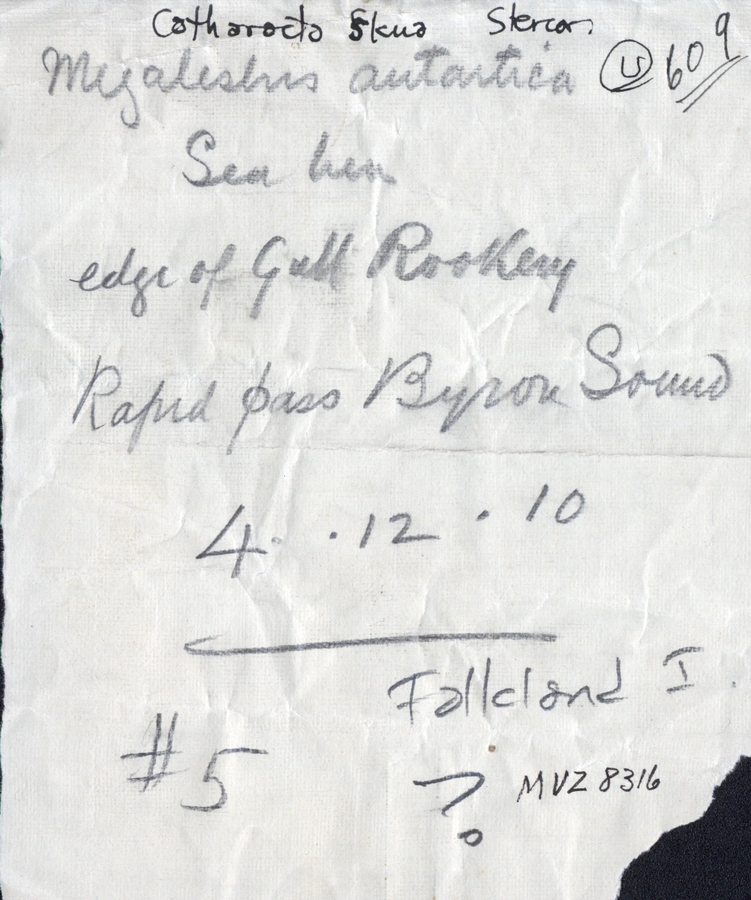 Catharacta Skua Stercor.
Megalestris antartica U 609
Sea hen
edge of Gull Rookery
Rapid pass Byron Sound
4 . 12 . 10
Falkland I.
#5 ? MVZ 8316